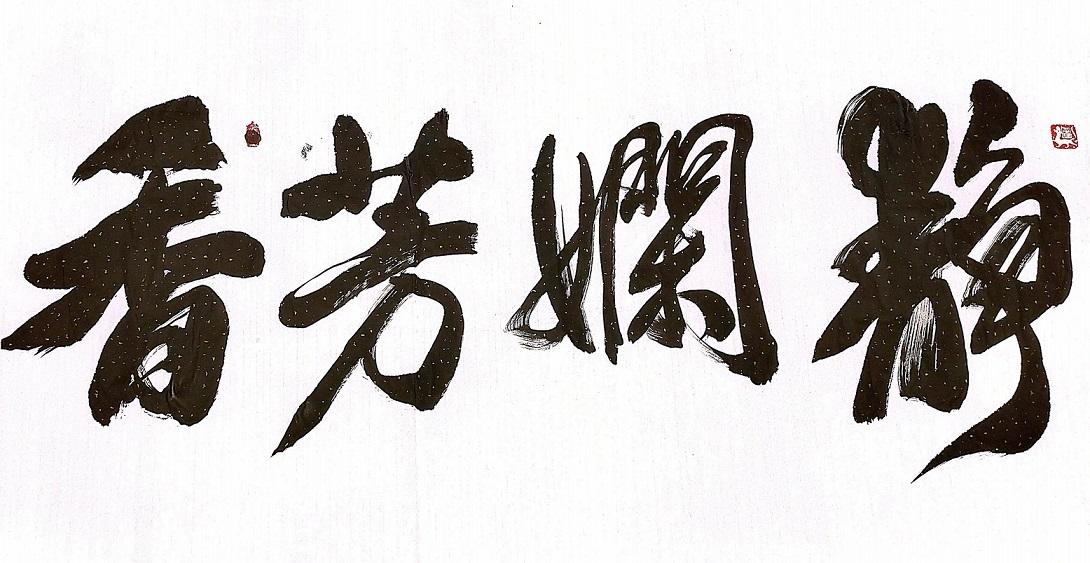 靜嫻芳香